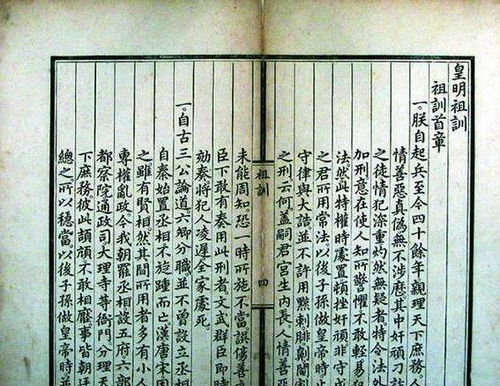 皇明祖訓
祖訓首章
一。朕自起兵至今四十餘年親理天下庶務
情善惡真偽無不涉歷其中奸頑刁
之徒情犯深重灼然無疑者特令法外
加刑意在使人知所警懼不敢輕易犯
法然此特權時處置頓挫奸頑非守
之君所用常法以後子孫做皇帝時止
守律與大誥並不許用黥刺腓劓閹
之刑云何蓋嗣君宮生內長人情善惡
祖訓
四
未能周知恐一時所施不當誤傷善
臣下敢有奏用此刑者文武群臣即時
劾奏將犯人凌遲全家處死
一。自古三公論道六卿分職並不曾設立丞
自秦始置丞相不旋踵而亡漢唐宋因
之雖有賢相然其間所用者多有小人
專權亂政今我朝罷丞相設五府六部
都察院通政司大理寺等衙門分理天
下庶務彼此頡頏不敢相壓事皆朝廷
總之所以穩當以後子孫做皇帝時並